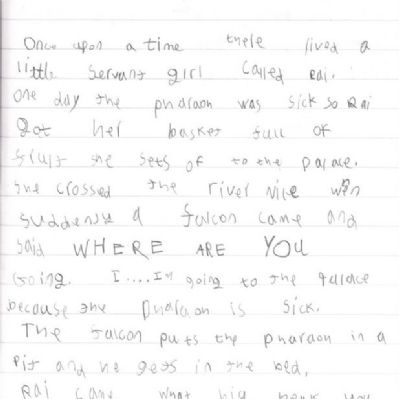 Once upon a time there lived a
little servant girl called Rai.
One day the pharaoh was sick so Rai
Got her basket full of
fruit she sets of to the palace.
she crossed the river Nile wen
suddenly a falcon came and
said WHERE ARE YOU
Going. I....I'm going to the pallace
because the Pharaoh is sick.
The falcon puts the pharaoh in a
Pit and he gets in the bed,
Rai came what big beak you